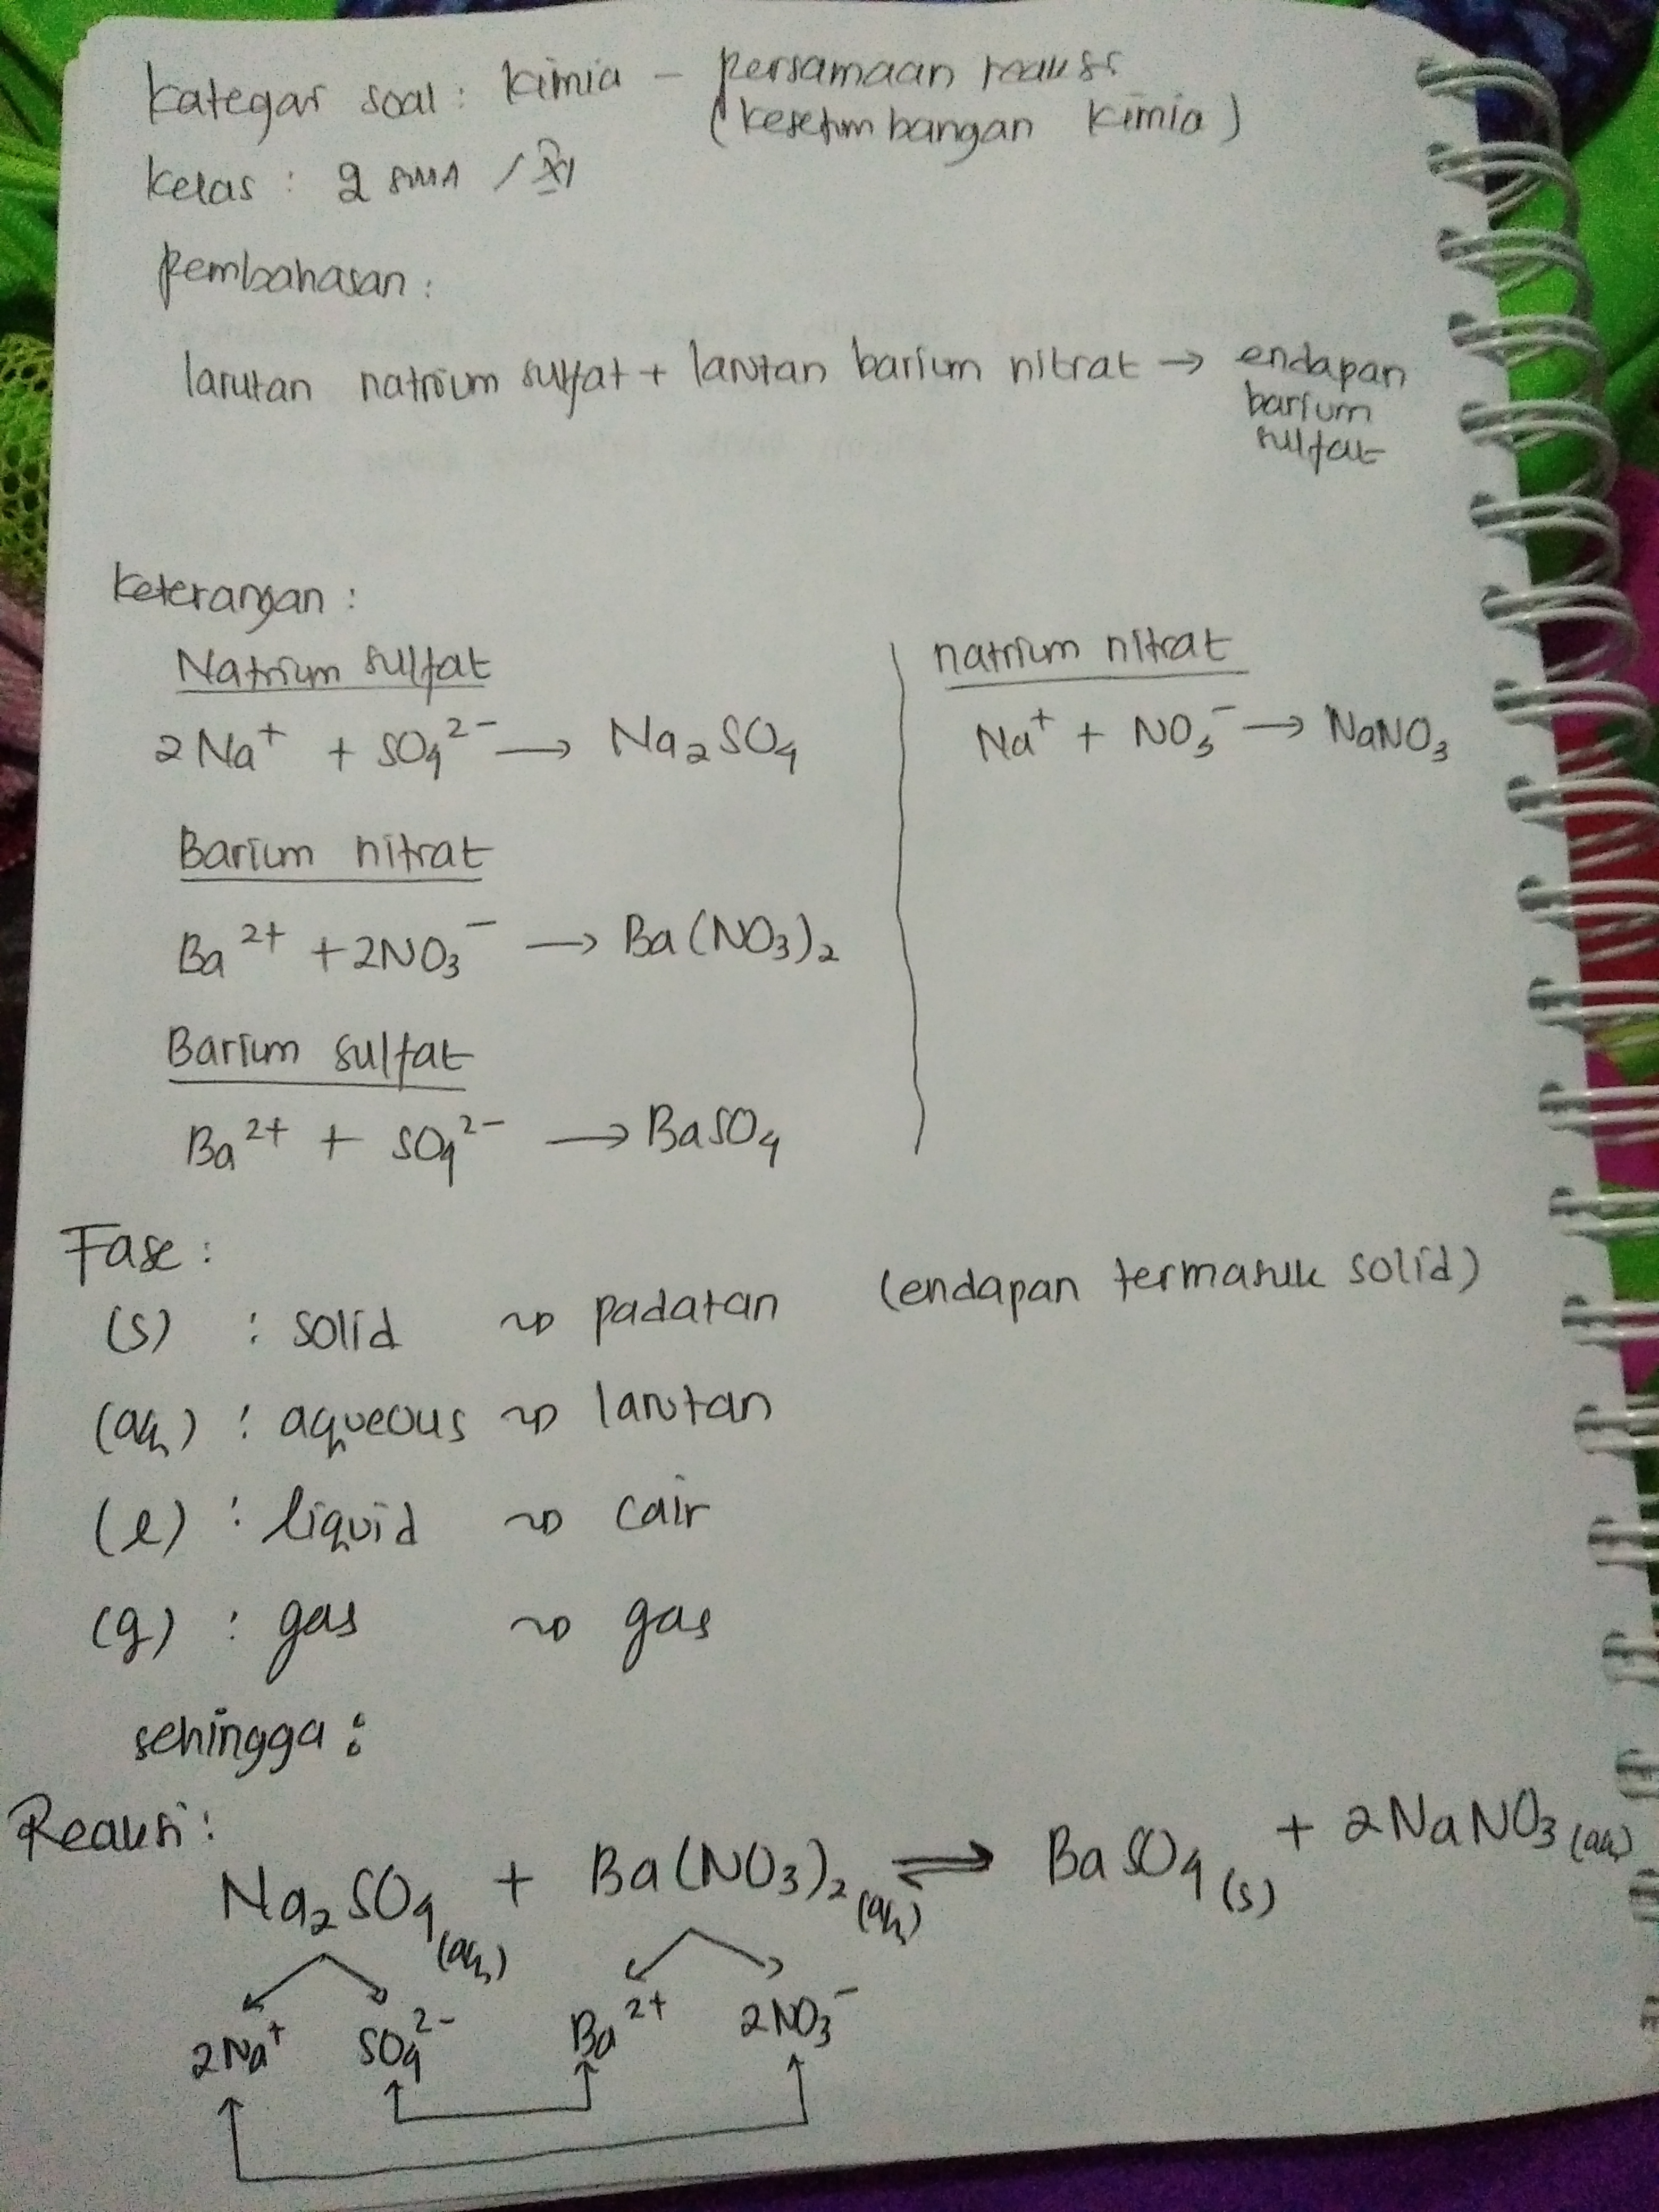 Kategori soal : Kimia – Persamaan reaksi
(Kesetimbangan Kimia)
Kelas : 2 SMA / XI
Pembahasan :
larutan natrium sulfat + larutan barium nitrat → endapan
barium
sulfat
Keterangan :
Natrium sulfat
2Na⁺ + SO₄²⁻ → Na₂SO₄
Barium nitrat
Ba²⁺ + 2NO₃⁻ → Ba(NO₃)₂
Barium sulfat
Ba²⁺ + SO₄²⁻ → BaSO₄
natrium nitrat
Na⁺ + NO₃⁻ → NaNO₃
Fase :
(s) : solid ⇝ padatan (endapan termasuk solid)
(aq) : aqueous ⇝ larutan
(l) : liquid ⇝ cair
(g) : gas ⇝ gas
sehingga :
Reaksi :
Na₂SO₄ (aq) + Ba(NO₃)₂ (aq) ⇌ BaSO₄ (s) + 2NaNO₃ (aq)
2Na⁺ SO₄²⁻ Ba²⁺ 2NO₃⁻